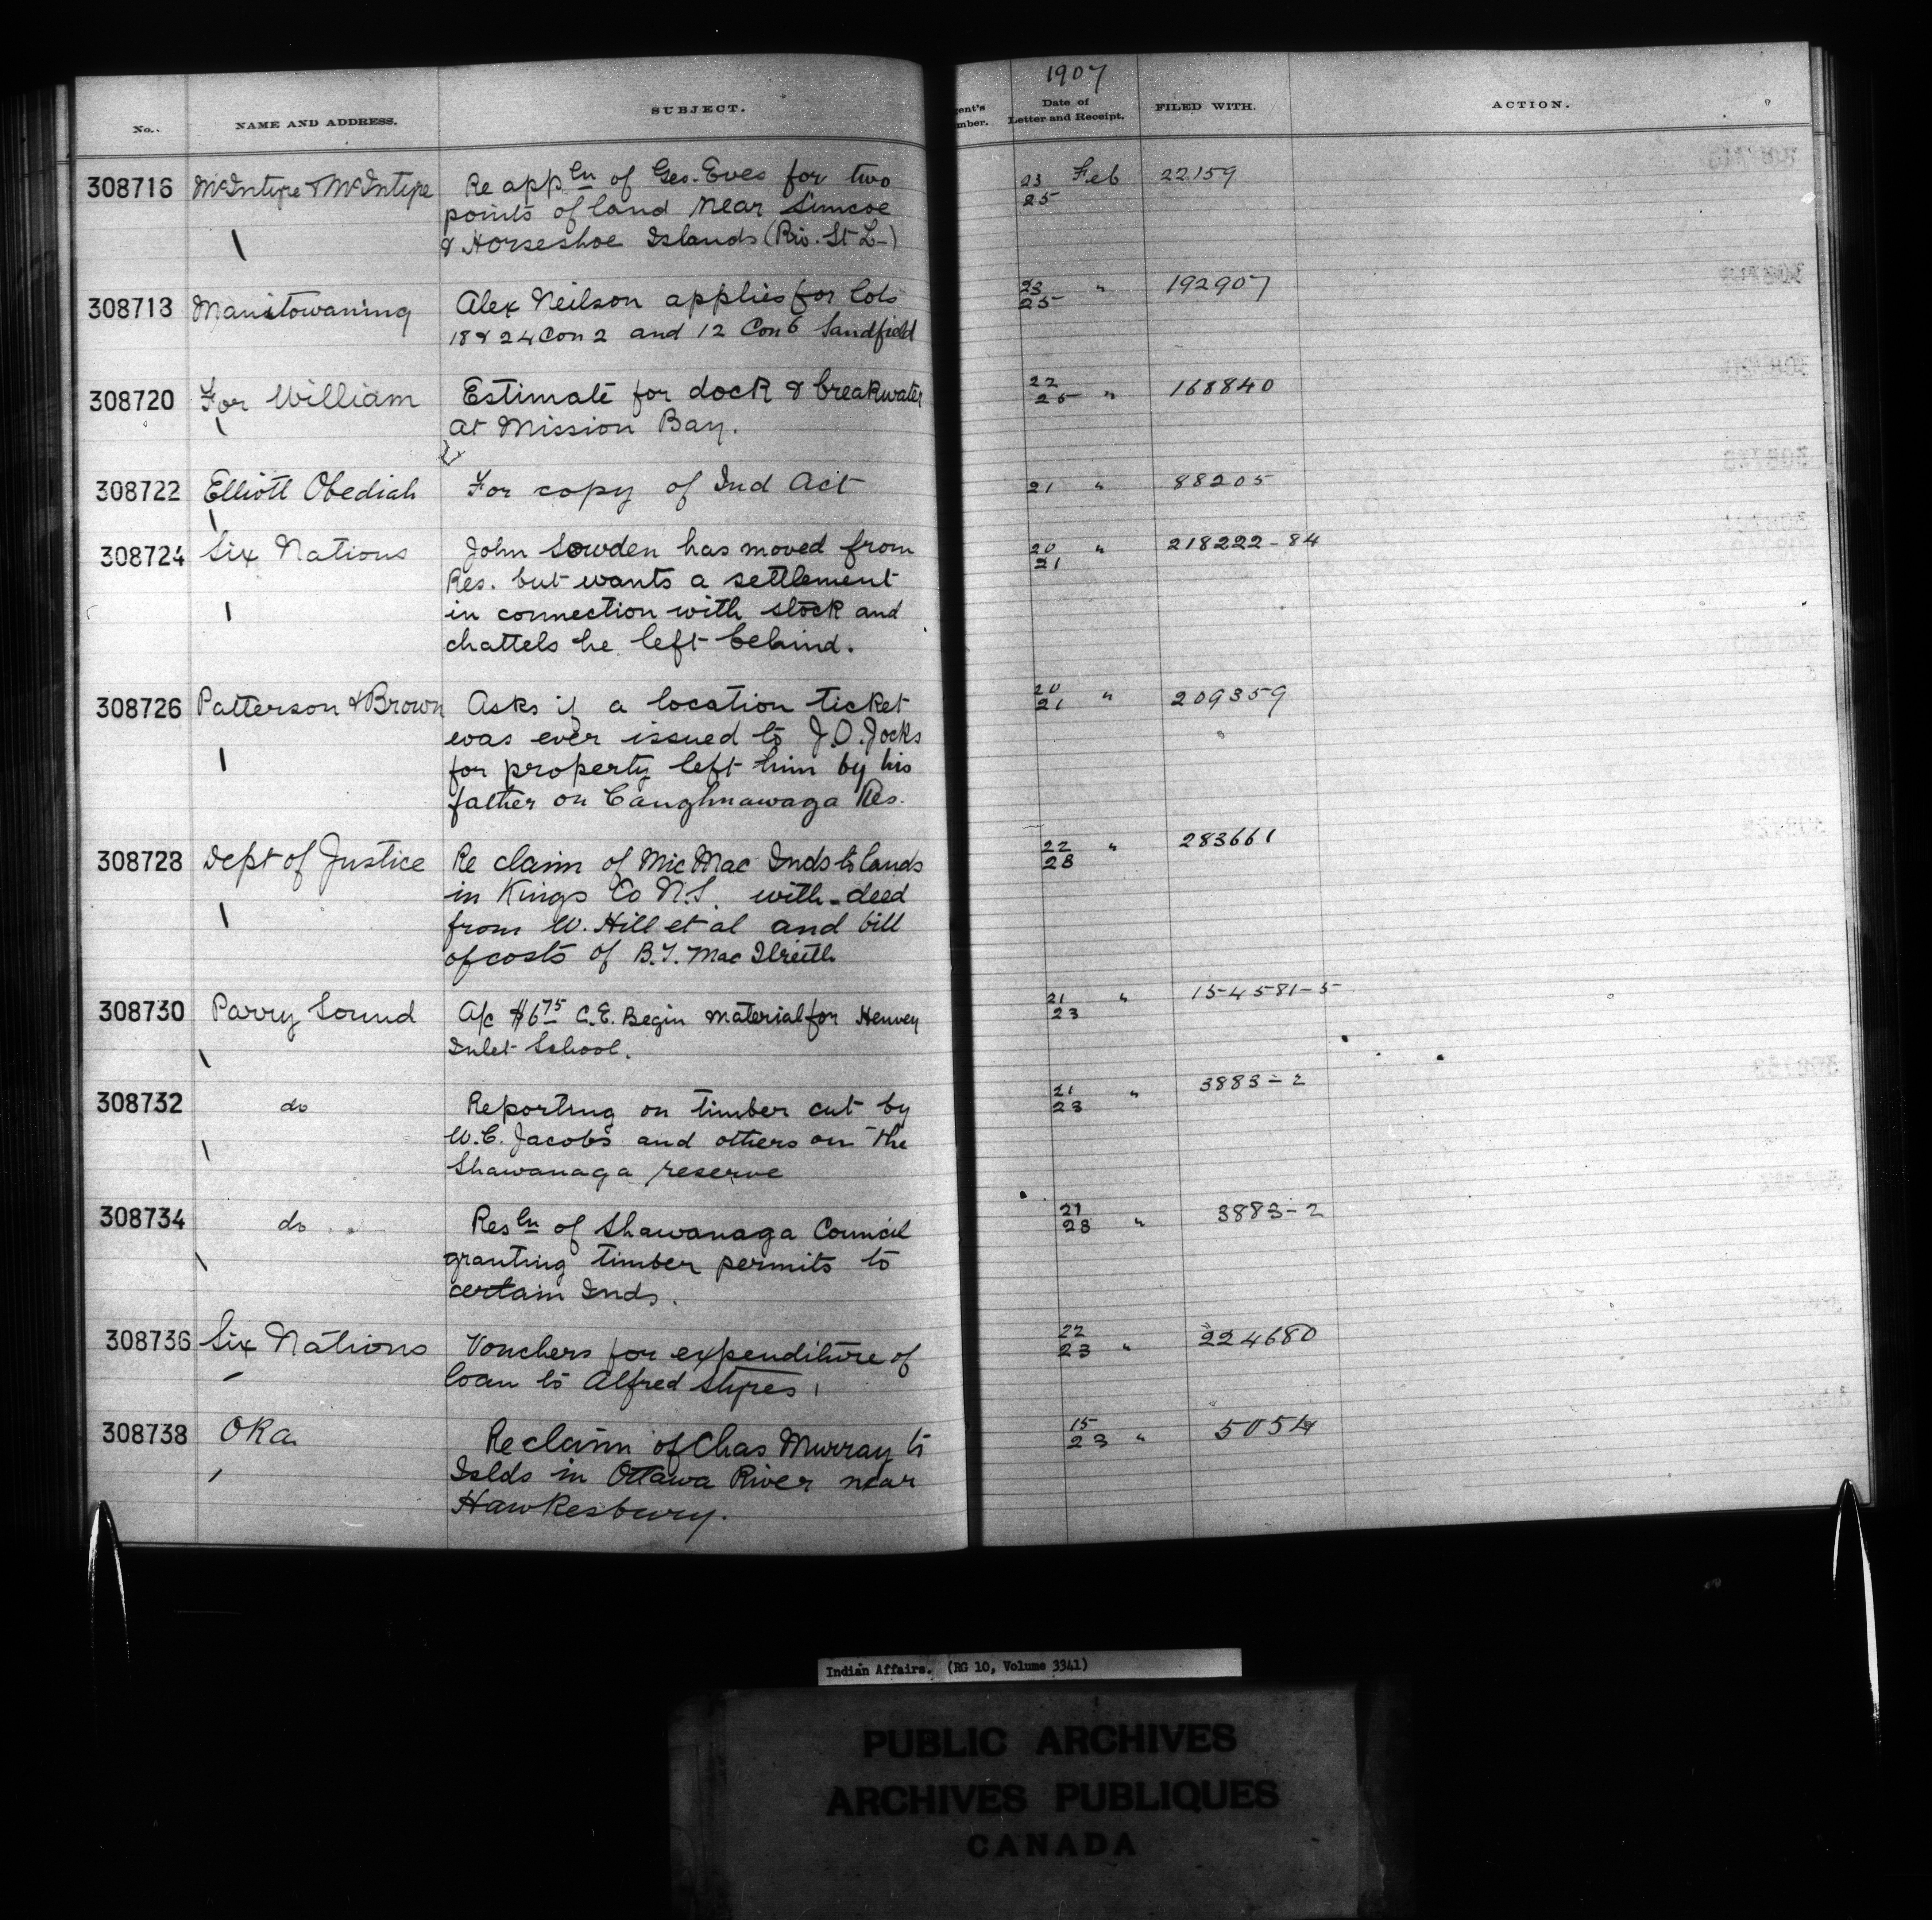 1907
No..
NAME AND ADDRESS.
SUBJECT.
gent's
mber.
Date of
Letter and Receipt.
FILED WITH.
ACTION.
308716 McIntyre & McIntyre Re appln of Geo. Eves for two 23 Feb 22159
points of land near Simcoe 25
& Horseshoe Islands (Riv. St L-)
308713 Manitowaning Alex Neilson applies for lots 23 " 192907
18 & 24 Con 2 and 12 Con 6 Sandfield 25
308720 For William Estimate for dock & breakwater 22 168840
at Mission Bay. 25 "
308722 Elliott Obediah For copy of Ind Act 21 " 88205
308724 Six Nations John Sowden has moved from 20 " 218222-84
Res. but wants a settlement 21
in connection with stock and
chattels he left behind.
308726 Patterson & Brown Asks if a location ticket 20 " 209359
was ever issued to J.O. Jocks 21
for property left him by his
father on Caughnawaga Res.
308728 Dept of Justice Re claim of Mic Mac Inds to lands 22 " 283661
in Kings Co N.S. with deed 28
from W. Hill et al and bill
of costs of B.T. Mac Ilreith
308730 Parry Sound A/c $6 75 C.E. Begin material for Henvey 21 " 154581-5
Inlet School. 23
308732 do Reporting on timber cut by 21 " 3883-2
W.C. Jacobs and others on the 23
Shawanaga reserve
308734 do Resln of Shawanaga Council 21 3883-2
granting timber permits to 28 "
certain Inds.
308736 Six Nations Vouchers for expenditure of 22 224680
loan to Alfred Styres 23 "
308738 Oka Re claim of Chas Murray to 15 5054
Islds in Ottawa River near 23 "
Hawkesbury.
Indian Affairs. (RG 10, Volume 3341)
PUBLIC ARCHIVES
ARCHIVES PUBLIQUES
CANADA